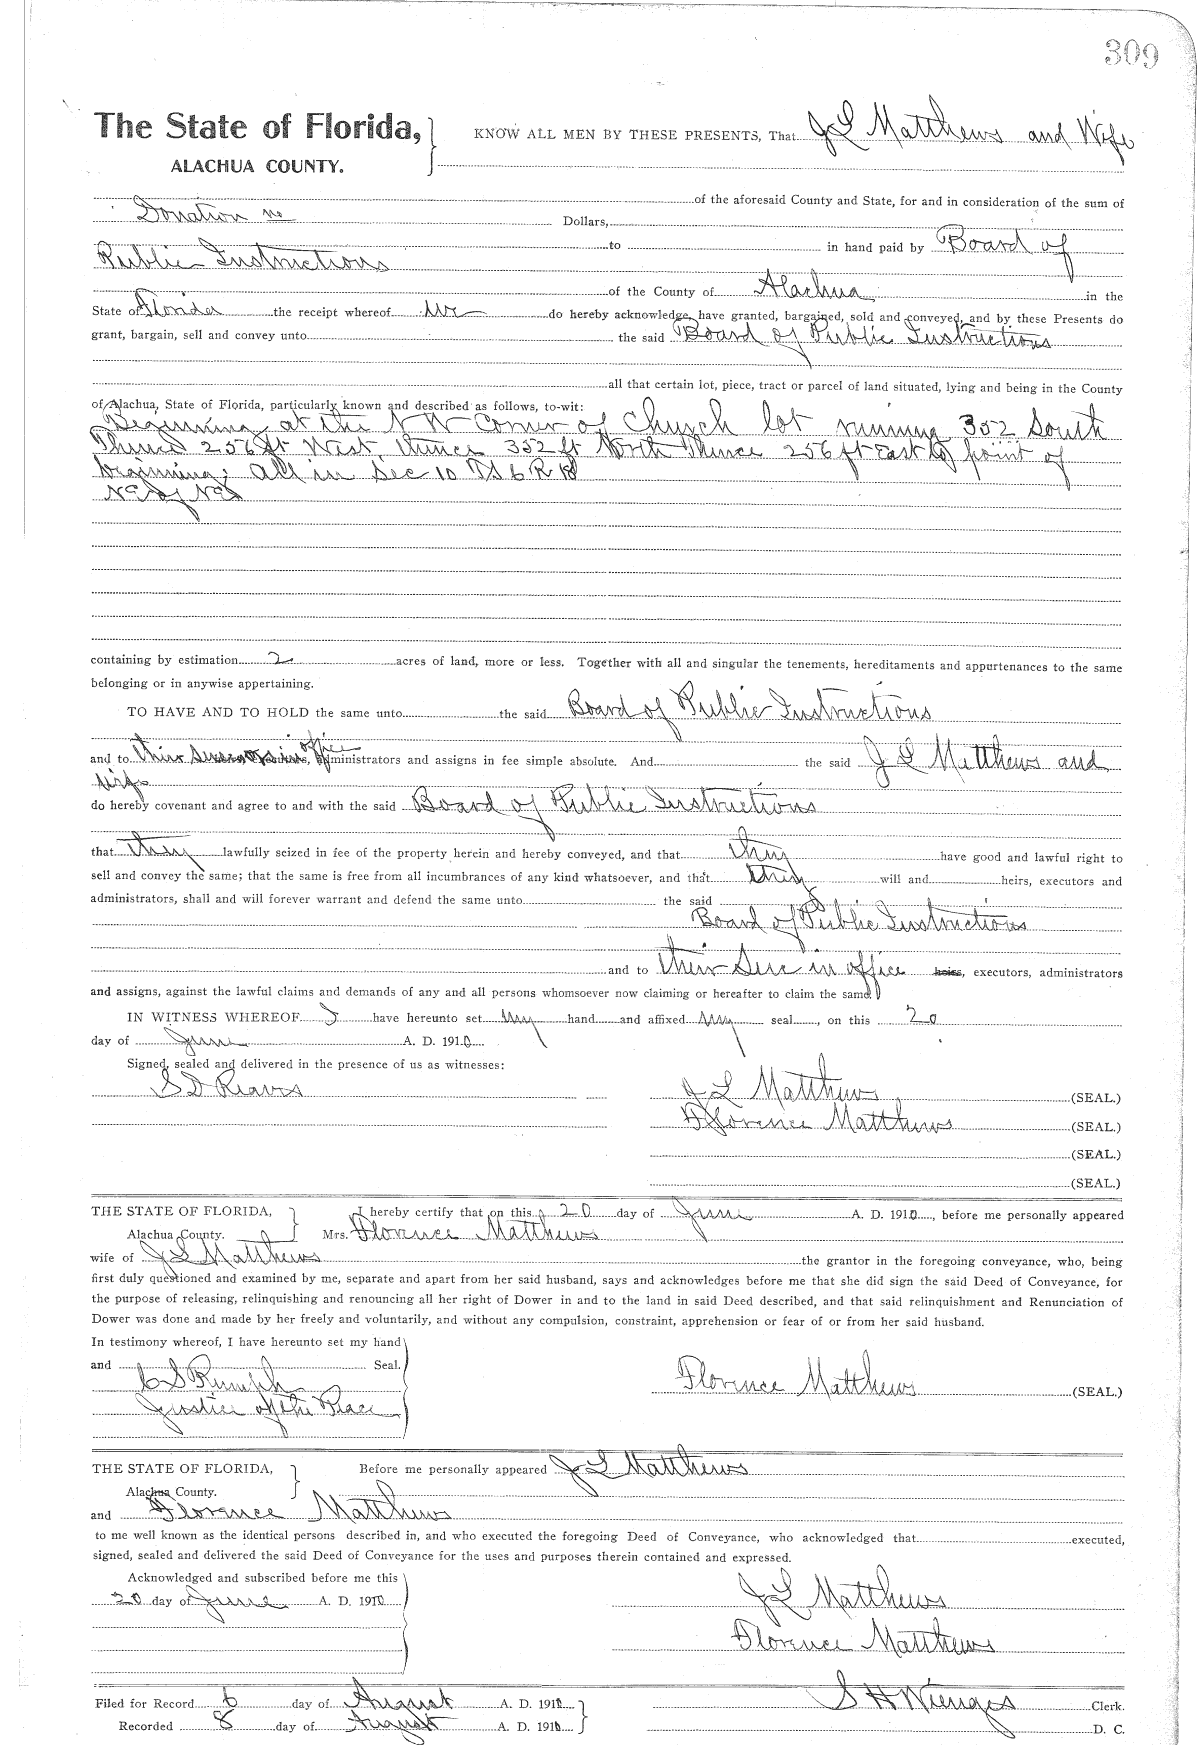 309
The State of Florida,
ALACHUA COUNTY.
KNOW ALL MEN BY THESE PRESENTS, That J L Matthews and Wife
of the aforesaid County and State, for and in consideration of the sum of
Donation Dollars,
to in hand paid by Board of
Public Instructions
of the County of Alachua in the
State of Florida the receipt whereof we do hereby acknowledge, have granted, bargained, sold and conveyed, and by these Presents do
grant, bargain, sell and convey unto the said Board of Public Instructions
all that certain lot, piece, tract or parcel of land situated, lying and being in the County
of Alachua, State of Florida, particularly known and described as follows, to-wit:
Beginning at the N W Corner of Church lot running 352 South
Thence 256 ft West, thence 352 ft North Thence 256 ft East to point of
beginning; all in Sec 10 T S 6 R 18
containing by estimation 2 acres of land, more or less. Together with all and singular the tenements, hereditaments and appurtenances to the same
belonging or in anywise appertaining.
TO HAVE AND TO HOLD the same unto the said Board of Public Instructions
and to their in office administrators and assigns in fee simple absolute. And the said J L Matthews and
wife
do hereby covenant and agree to and with the said Board of Public Instructions
that they lawfully seized in fee of the property herein and hereby conveyed, and that they have good and lawful right to
sell and convey the same; that the same is free from all incumbrances of any kind whatsoever, and that they will and heirs, executors and
administrators, shall and will forever warrant and defend the same unto the said
Board of Public Instructions
and to their Suc in office heirs, executors, administrators
and assigns, against the lawful claims and demands of any and all persons whomsoever now claiming or hereafter to claim the same.
IN WITNESS WHEREOF I have hereunto set my hand and affixed my seal, on this 20
day of June A. D. 1910
Signed, sealed and delivered in the presence of us as witnesses:
S D Reaves
J L Matthews (SEAL.)
Florence Matthews (SEAL.)
(SEAL.)
(SEAL.)
THE STATE OF FLORIDA,
Alachua County.
I hereby certify that on this 20 day of June A. D. 1910, before me personally appeared
Mrs. Florence Matthews
wife of J L Matthews the grantor in the foregoing conveyance, who, being
first duly questioned and examined by me, separate and apart from her said husband, says and acknowledges before me that she did sign the said Deed of Conveyance, for
the purpose of releasing, relinquishing and renouncing all her right of Dower in and to the land in said Deed described, and that said relinquishment and Renunciation of
Dower was done and made by her freely and voluntarily, and without any compulsion, constraint, apprehension or fear of or from her said husband.
In testimony whereof, I have hereunto set my hand
and Seal.
C S Rumph
Justice of the Peace
Florence Matthews (SEAL.)
THE STATE OF FLORIDA,
Alachua County.
Before me personally appeared J L Matthews
and Florence Matthews
to me well known as the identical persons described in, and who executed the foregoing Deed of Conveyance, who acknowledged that executed,
signed, sealed and delivered the said Deed of Conveyance for the uses and purposes therein contained and expressed.
Acknowledged and subscribed before me this
20 day of June A. D. 1910
J L Matthews
Florence Matthews
Filed for Record 6 day of August A. D. 1910
S H Wienges Clerk.
Recorded 8 day of August A. D. 1910
D. C.